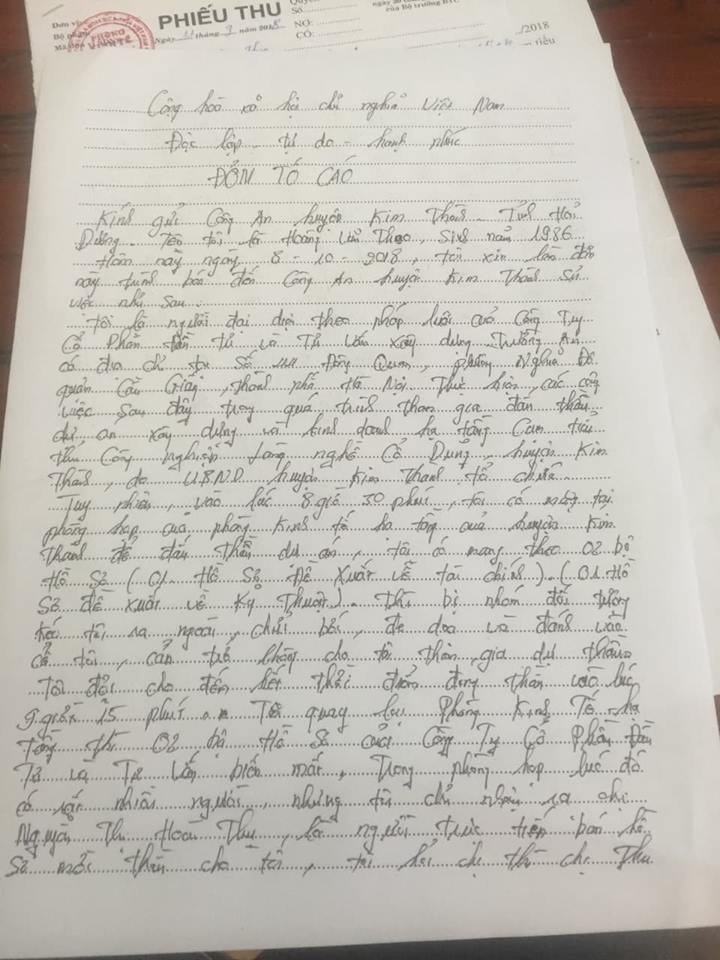 Đơn vị
Bộ phận
PHIẾU THU
Quyển
Số
của Bộ trưởng BTC
Ngày 11 tháng 9 năm 2018
NỢ:
CÓ:
/2018
triệu
Cộng hòa xã hội chủ nghĩa Việt Nam
Độc lập - tự do - hạnh phúc
ĐƠN TỐ CÁO
Kính gửi Công An huyện Kim Thành - Tỉnh Hải
Dương. Tên tôi là Hoàng Thạo, Sinh năm 1986
Hôm nay ngày 8 - 10 - 2018, tôi xin làm đơn
này trình báo đến Công An huyện Kim Thành Sự
việc như sau:
tôi là người đại diện theo pháp luật của Công Ty
Cổ Phần Đầu tư và Tư Vấn xây dựng Trường An
có địa chỉ tại Số Đông Quan, phường Nghĩa Đô
quận Cầu Giấy, thành phố Hà Nội. Thực hiện các công
việc sau đây trong quá trình tham gia đấu thầu
dự án xây dựng và kinh doanh hạ tầng Cụm tiểu
thủ Công nghiệp Làng nghề Cổ Dũng, huyện Kim
Thành, do U.B.N.D huyện Kim Thành tổ chức.
Tuy nhiên, vào lúc 8 giờ 30 phút, tôi có mặt tại
phòng họp của phòng Kinh tế hạ tầng của huyện Kim
Thành để đấu thầu dự án, tôi có mang theo 02 bộ
Hồ Sơ (01 Hồ Sơ Đề Xuất về tài chính). (01 Hồ
Sơ đề xuất về Kỹ Thuật). Thì bị nhóm đối tượng
Kéo tôi ra ngoài, chửi bới, đe dọa và đánh vào
cổ tôi, cản trở không cho tôi tham gia dự thầu.
Tôi đợi cho đến hết thời điểm đóng thầu vào lúc
9 giờ 15 phút Tôi quay lại Phòng Kinh Tế hạ
tầng thì 02 bộ Hồ Sơ của Công Ty Cổ Phần Đầu
Tư và Tư Vấn biến mất, Trong phòng họp lúc đó
có rất nhiều người, nhưng tôi chỉ nhận ra chị
Nguyễn Thị Hoài Thu, là người trực tiếp bán hồ
Sơ mời thầu cho tôi, tôi hỏi chị thì chị Thu